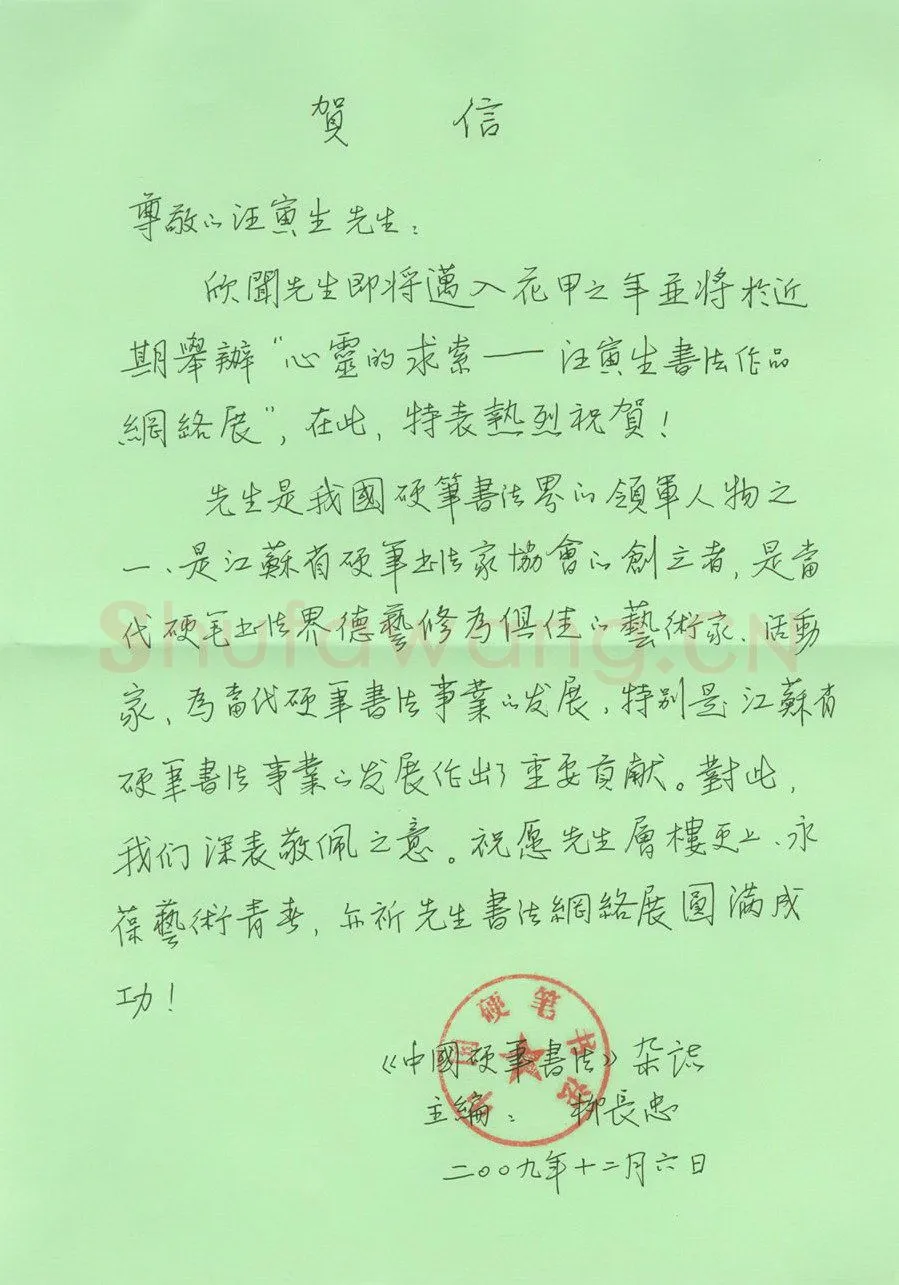 賀 信
尊敬的汪寅生先生：
欣聞先生即將邁入花甲之年並將於近
期舉辦“心靈的求索——汪寅生書法作品
網絡展”，在此，特表熱烈祝賀！
先生是我國硬筆書法界的領軍人物之
一、是江蘇省硬筆书法家協會的創立者，是當
代硬毛书法界德藝修為俱佳的藝術家、活動
家，為當代硬筆書法事業的发展，特别是江蘇省
硬筆書法事業的发展作出了重要貢献。對此，
我们深表敬佩之意。祝愿先生層樓更上、永
葆藝術青春，亦祈先生書法網絡展圓滿成
功！
中国硬笔书法
《中國硬筆書法》杂誌
主編： 柳長忠
二00九年十二月六日
Shufawang.CN